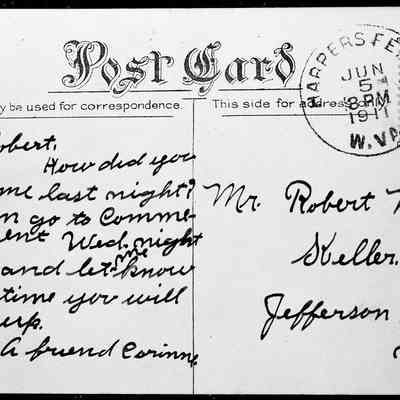 Post Card
y be used for correspondence.
This side for address only
HARPERS FE
JUN
5
8 PM
1911
W.VA
obert.
How did you
me last night?
n go to Comme-
ent Wed. night
and let me know
time you will
up.
A friend Corinne
Mr. Robert
Keller.
Jefferson